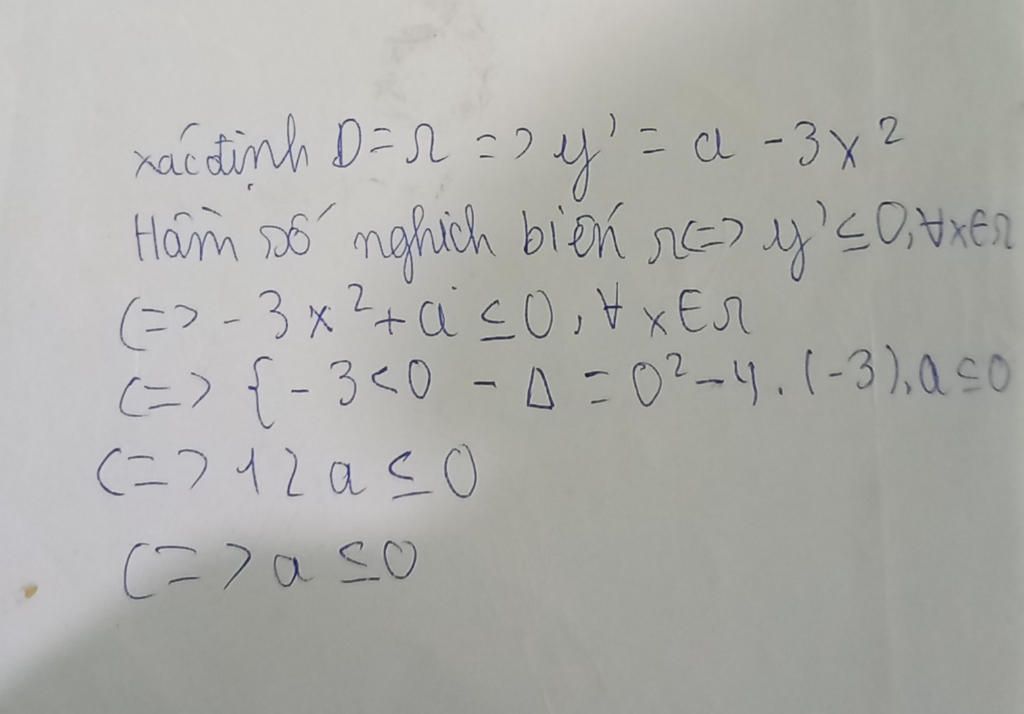 xác định D = Ω => y' = a - 3x²
Hàm số nghịch biến Ω <=> y' ≤ 0, ∀x∈Ω
<=> - 3x² + a ≤ 0, ∀ x∈Ω
<=> { - 3 < 0 - Δ = 0² - 4 . (-3) . a ≤ 0
<=> 12a ≤ 0
<=> a ≤ 0